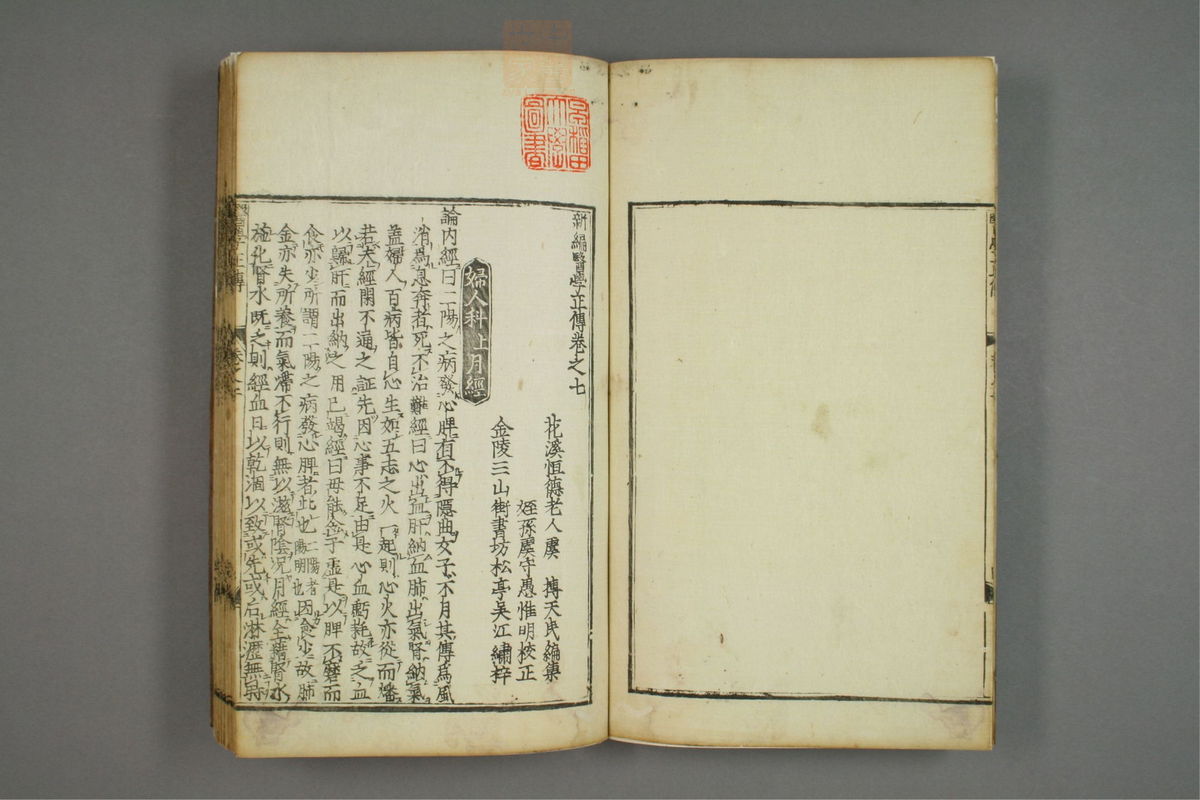 新編醫學正傳卷之七
花溪恒德老人虞 摶天民編集
姪孫虞守愚惟明校正
金陵三山街書坊松亭吳江繡梓
婦人科上月經
論內經曰二陽之病發心脾有不得隱曲女子不月其傳爲風
消爲息奔者死不治難經曰心出血肝納血肺出氣腎納氣
蓋婦人百病皆自心生如五志之火一起則心火亦從而燔
若夫經閉不通之証先因心事不足由是心血虧耗故乏血
以歸肝而出納之用已竭經曰母能令子虛是以脾不磨而
食亦少所謂二陽之病發心脾者此也二陽者陽明也因食少故肺
金亦失所養而氣滯不行則無以滋腎陰況月經全藉腎水
施化腎水既乏則經血日以乾涸以致或先或后淋瀝無時
早稲田大學圖書